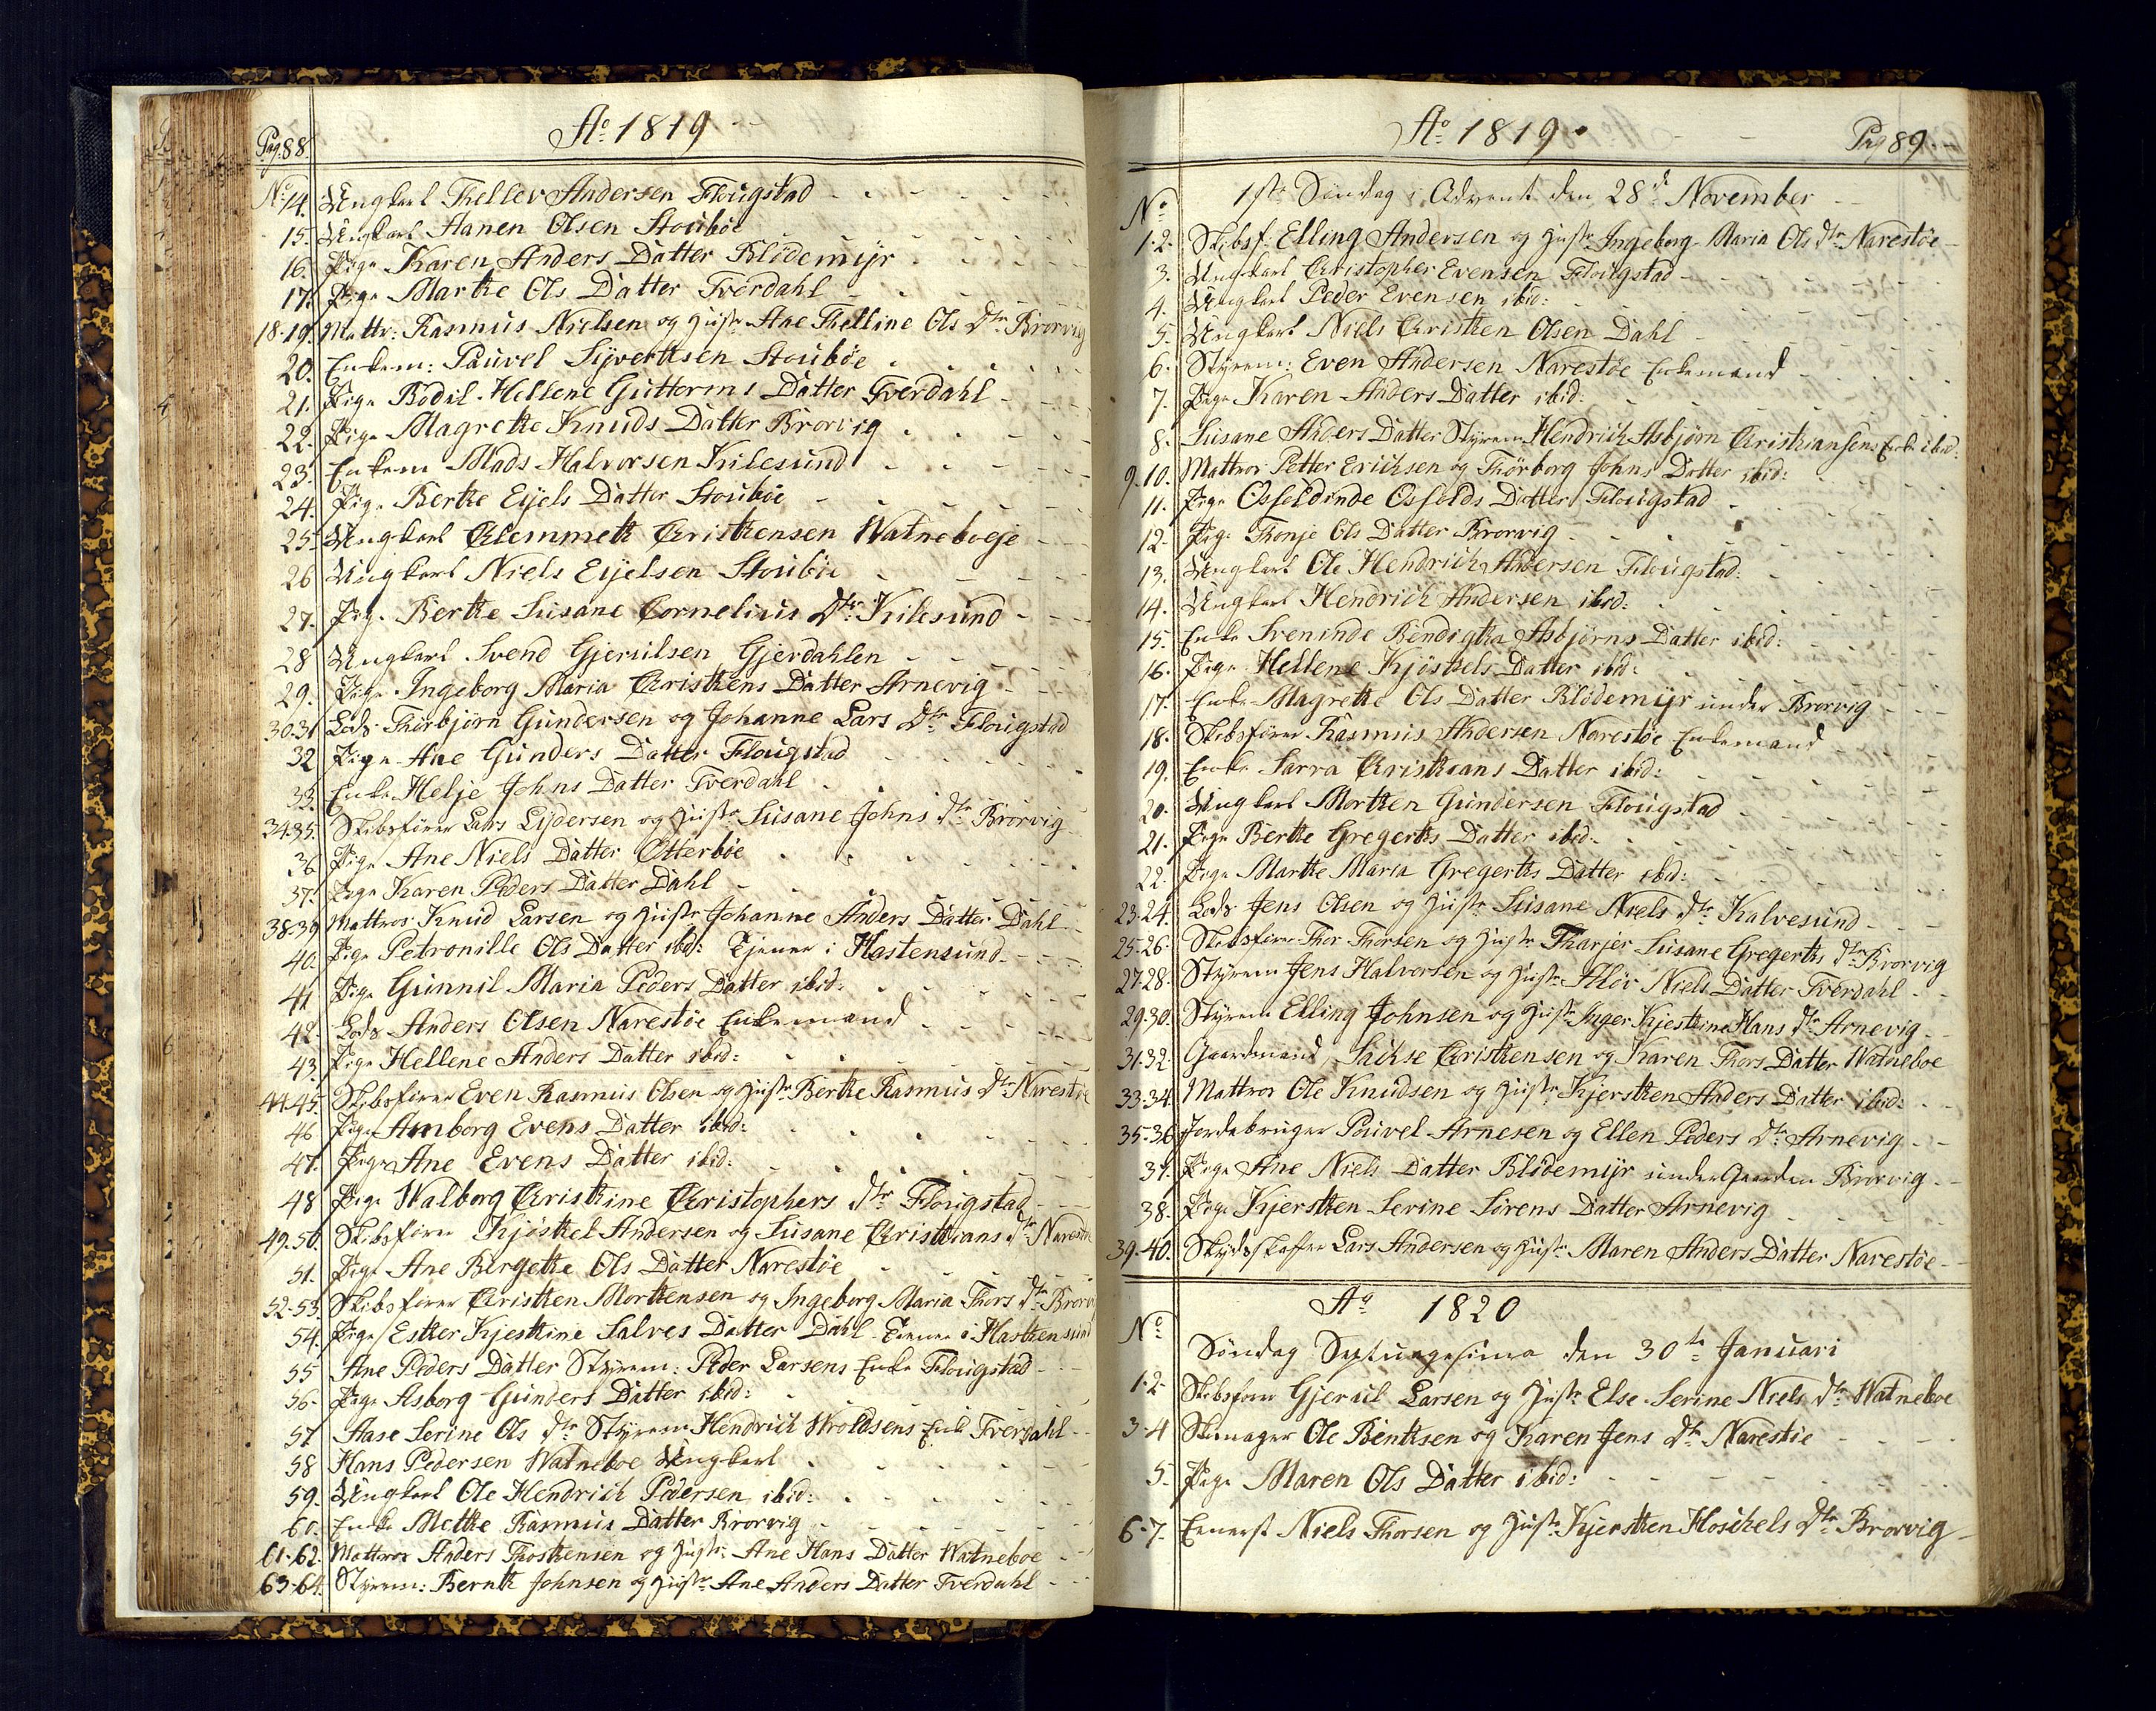 Pag: 88.
Ao 1819
No 14. Ungkarl Thellev Andersen Flougstad
15. Ungkarl Aanen Olsen Stoubøe
16. Pige Karen Anders Datter Blødemyr
17. Pige Marthe Ols Datter Tverdahl
18-19. Mattr: Rasmus Nielsen og Hustr Ane Thelline Ols Dtr Brorvig
20. Enkem: Pouvel Syvertsen Stoubøe
21. Pige Bodil Hellene Guttorms Datter Tverdahl
22. Pige Magrethe Knuds Datter Brorvig
23. Enkem Mads Halvorsen Kilesund
24. Pige Berthe Eyels Datter Stoubøe
25. Ungkarl Clemmeth Cristhensen Watneboeje
26 Ungkarl Niels Eyelsen Stoubøe
27. Pige Berthe Susane Cornelius Dtr Kilesund
28 Ungkarl Svend Gjerulsen Gjerdahlen
29. Pige Ingeborg Maria Cristhens Datter Arnevig
30.31 Lods Thorbjørn Gundersen og Johanne Lars Dtr Flougstad
32 Pige Ane Gunders Datter Flougstad
33. Enke Helje Johns Datter Tverdahl
34.35. Skibsfører Lars Lydersen og Hustr Susane Johns Dtr Brorvig
36 Pige Ane Niels Datter Otterbøe
37. Pige Karen Peders Datter Dahl
38-39 Mattros Knud Larsen og Hustr Johanne Anders Datter Dahl
40. Pige Petronille Ols Datter ibd: Tjener i Hastensund
41 Pige Gunnil Maria Peders Datter ibid:
42. Lods Anders Olsen Narestøe Enkemand
43. Pige Hellene Anders Datter ibid:
44.45. Skibsfører Even Rasmus Olsen og Hustr Berthe Rasmus Dtr Narestøe
46 Pige Amborg Evens Datter ibid:
47. Pige Ane Evens Datter ibid:
48 Pige Walborg Cristhine Cristophers Dtr Flougstad
49.50. Skibsfører Kjøsthel Andersen og Susane Cristhians Dtr Narestøe
51. Pige Ane Birgethe Ols Datter Narestøe
52-53. Skibsfører Cristhen Morthensen og Ingeborg Maria Thors Dtr Brorvig
54. Pige Esther Kjesthine Salves Datter Dahl Tiener i Hasthensund
55 Ane Peders Datter Styrem: Peder Larsens Enke Flougstad
56. Pige Asborg Gunders Datter ibid:
57 Aase Serine Ols Dtr Styrem Hendrich Wroldsens Enke Tverdahl
58 Hans Pedersen Watneboe Ungkarl
59. Ungkarl Ole Hendrich Pedersen ibid:
60. Enke Methe Rasmus Datter Brorvig
61-62. Mattros Anders Thosthensen og Hustr: Ane Hans Datter Watneboe
63-64. Styrem: Bernth Johnsen og Hustr Ane Anders Datter Tverdahl
Ao 1819
Pag 89
No 1ste Søndag i Advent den 28de November
1.2. Skibsf: Elling Andersen og Hustr Ingeborg Maria Ols Dtr Narestøe
3. Ungkarl Cristopher Evensen Flougstad
4. Ungkarl Peder Evensen ibid:
5. Ungkarl Niels Cristhen Olsen Dahl
6. Styrem: Even Andersen Narestøe Enkemand
7. Pige Karen Anders Datter ibid:
8. Susane Anders Datter Styrem Hendrich Asbjørn Cristhiansens Enke ibid:
9.10. Mattros Petter Erichsen og Thørborg Johns Datter ibid:
11. Pige Osfoldinde Osfolds Datter Flougstad
12. Pige Thonje Ols Datter Brorvig
13. Ungkarl Ole Hendrich Andersen Flougstad:
14. Ungkarl Hendrich Andersen ibid:
15. Enke Sveninde Bendigtha Asbjørns Datter ibid:
16. Pige Hellene Kjøsthels Datter ibd:
17. Enke Magrethe Ols Datter Blødemyr under Brorvig
18. Skibsfører Rasmus Andersen Narestøe Enkemand
19. Enke Sarra Cristhians Datter ibid:
20. Ungkarl Morthen Gundersen Flougstad
21. Pige Berthe Gregerths Datter ibid:
22. Pige Marthe Maria Gregerths Datter ibid:
23.24. Lods Jens Olsen og Hustr Susane Niels Dtr Kalvesund
25-26. Skibsfører Thor Thorsen og Hustr Tharjer Susane Gregerths Dtr Brorvig
27-28. Styrem Jens Halvorsen og Hustr Aløv Niels Datter Tverdahl
29.30. Styrem Elling Johnsen og Hustr Inger Kjesthine Hans Dtr Arnevig
31.32. Gaardmand Sichse Cristhensen og Karen Thors Datter Watneboe
33.34. Mattros Ole Knudsen og Hustr Kjersthen Anders Datter ibid:
35-36 Jordebruger Pouvel Arnesen og Ellen Peders Dtr Arnevig
37. Pige Ane Niels Datter Blødemyr under Gaarden Brorvig
38. Pige Kjersthen Serine Sørens Datter Arnevig
39.40. Skydsskaffer Lars Andersen og Hustr Maren Anders Datter Narestøe
Ao 1820
No Søndag Septuagesima den 30te Januari
1.2. Skibsfører Gjerul Larsen og Hustr Else Serine Niels Dtr Watneboe
3-4 Skomager Ole Benthsen og Karen Jens Dtr Narestøe
5. Pige Maren Ols Datter ibid:
6-7. Niels Thorsen og Hustr Kjersthen Hoschels Dtr Brorvig